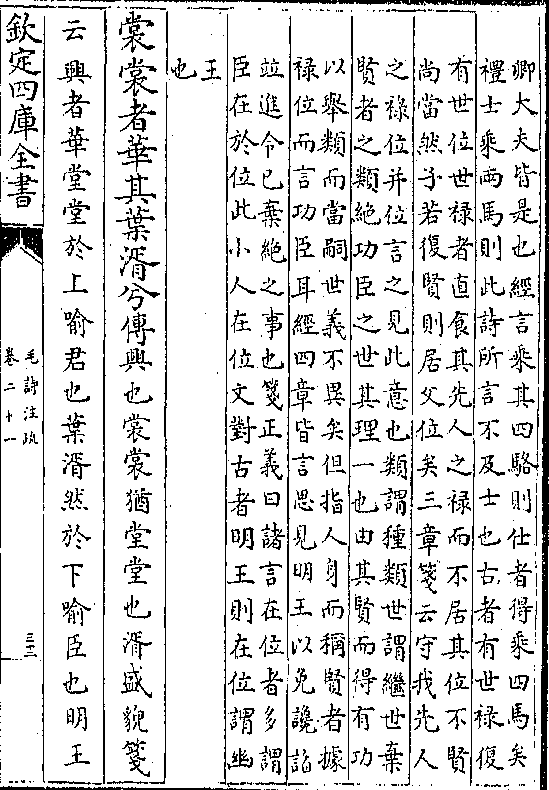 卿大夫皆是也經言乘其四駱則仕者得乘四馬矣
禮士乘两馬則此詩所言不及士也古者有世禄復
有世位世禄者直食其先人之禄而不居其位不賢
尚當然子若復賢則居父位矣三章箋云守我先人
之禄位并位言之見此意也類謂種類世謂繼世棄
賢者之類絶功臣之世其理一也由其賢而得有功
以舉類而當嗣世義不異矣但指人身而稱賢者據
禄位而言功臣耳經四章皆言思見明王以免讒謟
並進令已棄絶之事也箋正義曰諸言在位者多謂
臣在於位此小人在位文對古者明王則在位謂幽
王
也
裳裳者華其葉湑兮傳興也裳裳猶堂堂也湑盛貌箋
云興者華堂堂於上喻君也葉湑然於下喻臣也明王
欽定四庫全書
毛詩注疏
卷二十一
三十二